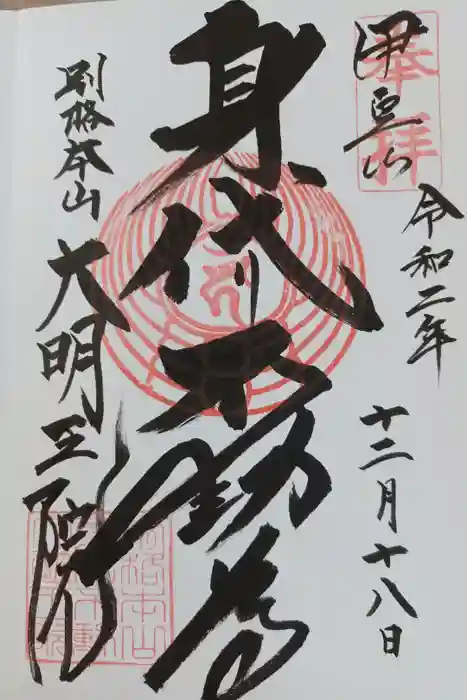 奉拝
伊豆山
令和二年
十二月十八日
身代り不動尊
別格本山
大明王院